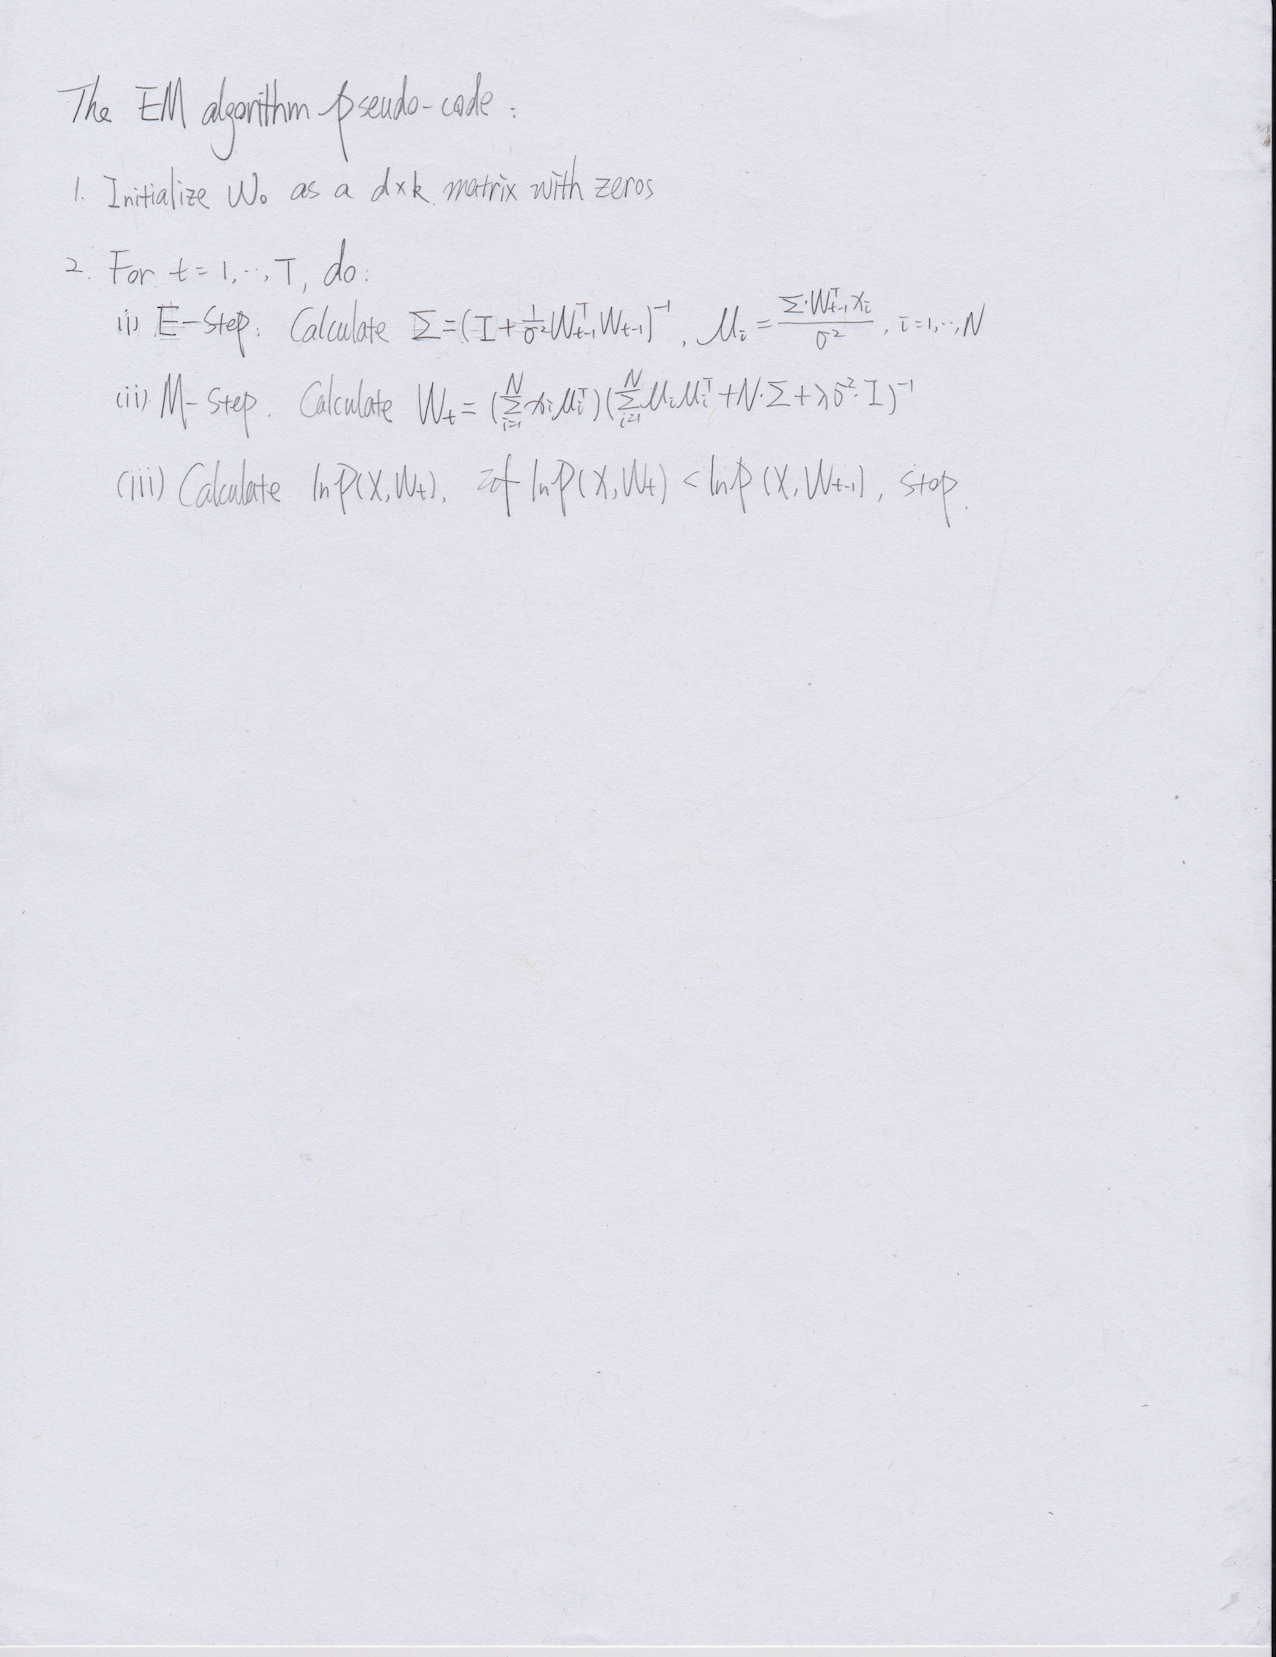 The EM algorithm pseudo-code:
1. Initialize W₀ as a d×k matrix with zeros
2. For t=1,..,T, do:
(i) E-Step. Calculate Σ=(I+1/σ² Wᵀₜ₋₁Wₜ₋₁)⁻¹, μᵢ = Σ·Wᵀₜ₋₁xᵢ/σ², i=1,..,N
(ii) M-Step. Calculate Wₜ = (Σᵢ₌₁ᴺ xᵢμᵢᵀ)(Σᵢ₌₁ᴺ μᵢμᵢᵀ+N·Σ+λσ²·I)⁻¹
(iii) Calculate lnp(X,Wₜ). if lnp(X,Wₜ) < lnp(X,Wₜ₋₁), stop.